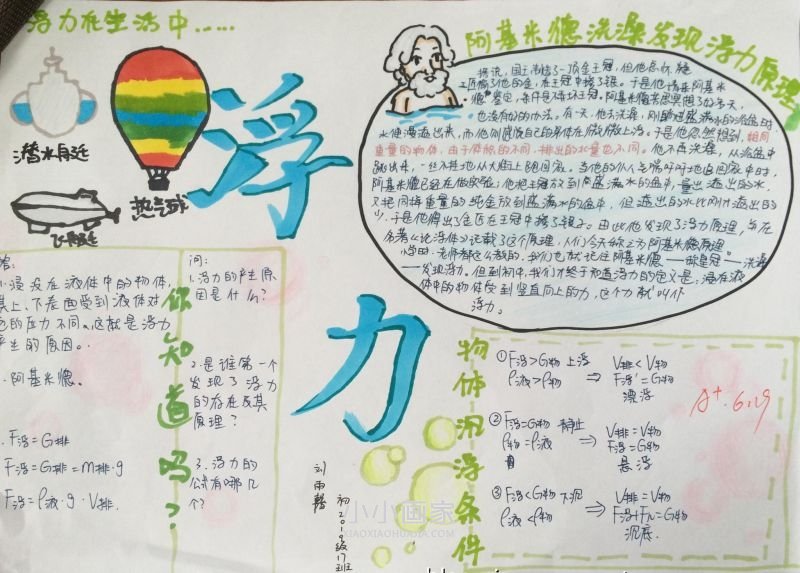 浮力在生活中……
潜水艇
热气球
飞艇
浮力
阿基米德洗澡发现浮力原理
据说,国王制造了一顶金王冠,但他总怀疑
工匠偷了他的金,在王冠中掺了银。于是他请来阿基米
德鉴定,条件是
阿基米德
也没有好的办法。有一天,他去洗澡,刚
水便漫溢出来,而他则感觉自己的身体在微微上浮。于是他忽然想到,相同
重量的物体,由于体积的不同,排出的水量也不同。他不再洗澡,从浴盆中
跳出来,一丝不挂地从大街上跑回家。当他的仆人气喘吁吁地追回家中时,
阿基米德已经在做实验;他把王冠放到盛满水的盆中,量出溢出的水,
又把同样重量的纯金放到盛满水的盆中,但溢出的水比刚才溢出的
少,于是他得出了金匠在王冠中掺了银子。由此他发现了浮力原理,并在
命著《论浮体》记载了这个原理,人们今天称之为阿基米德原理
当时,老师都这么教的,我们也就记住阿基米德——皇冠——洗澡
——发现浮力。但到初中,我们才终于知道浮力的定义是:浸在液
体中的物体受到竖直向上的力,这个力就叫作
浮力。
你知道吗?
1.浸没在液体中的物体,
其上、下表面受到液体对
的压力不同、这就是浮力
产生的原因。
.阿基米德。
F浮=G排
F浮=G排=m排·g
F浮=ρ液·g·V排.
问:
1.浮力的产生原
因是什么?
2.是谁第一个
发现了浮力
的存在及其
原理?
3.浮力的
公式有哪几
个?
刘雨
初2019级17班
物体沉浮条件
①F浮>G物 上浮 V排<V物
ρ液>ρ物 ⇒ F浮'=G物
漂浮
②F浮=G物 静止 V排=V物
ρ物=ρ液 ⇒ F浮=G物
悬浮
③F浮<G物 下沉 V排=V物
ρ液<ρ物 ⇒ F浮+FN=G物
沉底.
A+. 6.19
小小画家
XIAOXIAOHUAJIA.COM